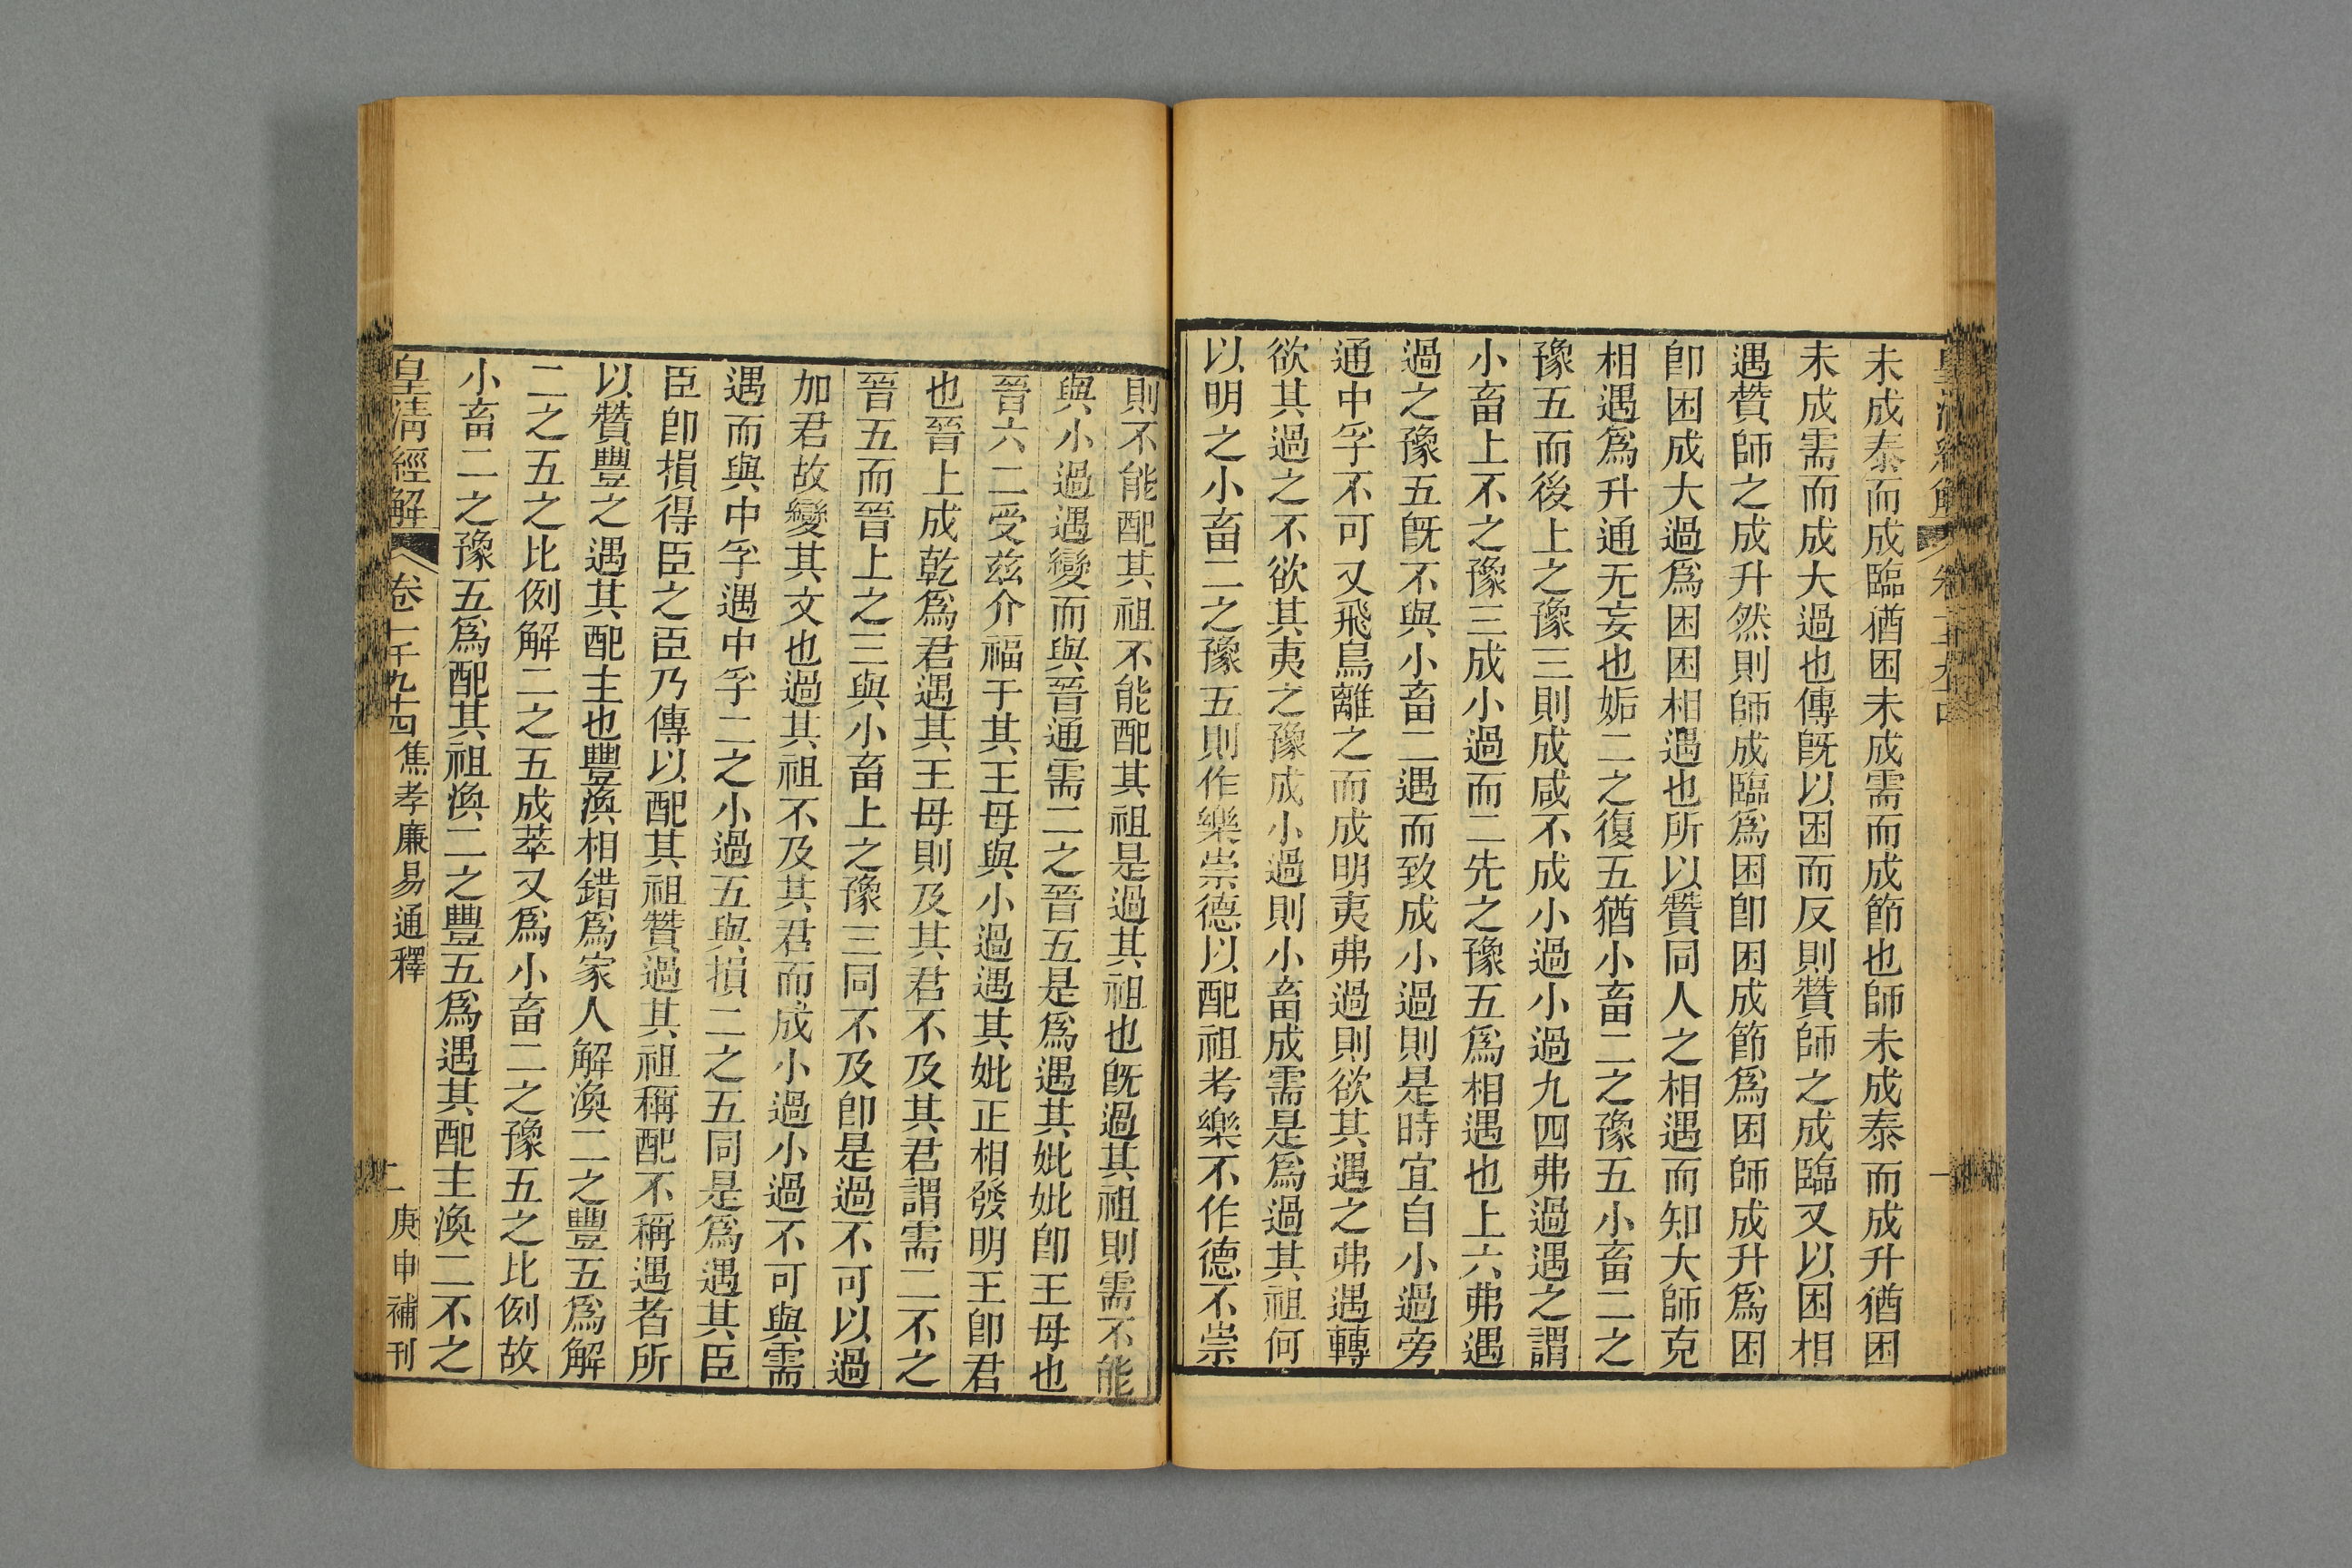 未成泰而成臨猶困未成需而成節也師未成泰而成升猶困
未成需而成大過也傳旣以困而反則贊師之成臨又以困相
遇贊師之成升然則師成臨爲困卽困成節爲困師成升爲困
卽困成大過爲困困相遇也所以贊同人之相遇而知大師克
相遇爲升通无妄也姤二之復五猶小畜二之豫五小畜二之
豫五而後上之豫三則成咸不成小過小過九四弗過遇之謂
小畜上不之豫三成小過而二先之豫五爲相遇也上六弗遇
過之豫五旣不與小畜二遇而致成小過則是時宜自小過旁
通中孚不可又飛鳥離之而成明夷弗過則欲其遇之弗遇轉
欲其過之不欲其夷之豫成小過則小畜成需是爲過其祖何
以明之小畜二之豫五則作樂崇德以配祖考樂不作德不崇
則不能配其祖不能配其祖是過其祖也旣過其祖則需不能
與小過遇變而與晉通需二之晉五是爲遇其妣妣卽王母也
晉六二受玆介福于其王母與小過遇其妣正相發明王卽君
也晉上成乾爲君遇其王母則及其君不及其君謂需二不之
晉五而晉上之三與小畜上之豫三同不及卽是過不可以過
加君故變其文也過其祖不及其君而成小過小過不可與需
遇而與中孚遇中孚二之小過五與損二之五同是爲遇其臣
臣卽損得臣之臣乃傳以配其祖贊過其祖稱配不稱遇者所
以贊豐之遇其配主也豐渙相錯爲家人解渙二之豐五爲解
二之五之比例解二之五成萃又爲小畜二之豫五之比例故
小畜二之豫五爲配其祖渙二之豐五爲遇其配主渙二不之
皇淸經解 卷一千九十四 焦孝廉易通釋 二 庚申補刊